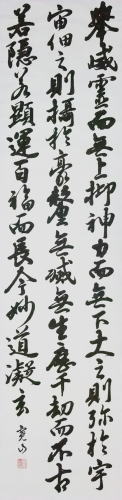 舉威靈而無上抑神力而無下大之則弥於宇
宙細之則攝於豪釐無滅無生歷千劫而不古
若隱若顯運百福而長今妙道凝玄